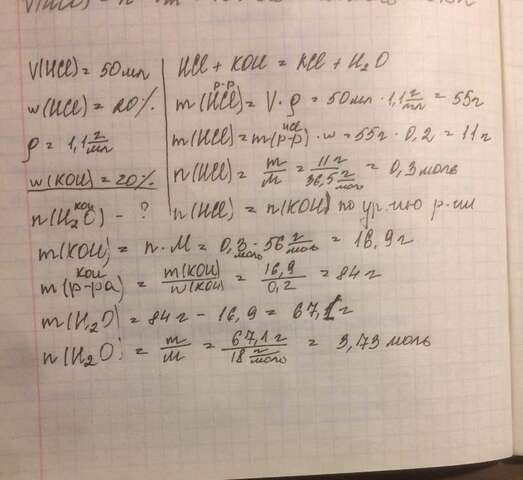 V(HCl) = 50 мл
w(HCl) = 20%.
ρ = 1,1 г/мл
w(KOH) = 20%.
n(H₂O) KOH - ?
HCl + KOH = KCl + H₂O
m(HCl) р-р = V · ρ = 50 мл · 1,1 г/мл = 55 г
m(HCl) = m(р-р) HCl · w = 55 г · 0,2 = 11 г
n(HCl) = m/M = 11 г / 36,5 г/моль = 0,3 моль
n(HCl) = n(KOH) по ур. ию р-ии
m(KOH) = n · M = 0,3 моль · 56 г/моль = 16,9 г
m(р-ра) KOH = m(KOH)/w(KOH) = 16,9/0,2 = 84 г
m(H₂O) = 84 г - 16,9 = 67,1 г
n(H₂O) = m/M = 67,1 г / 18 г/моль = 3,73 моль